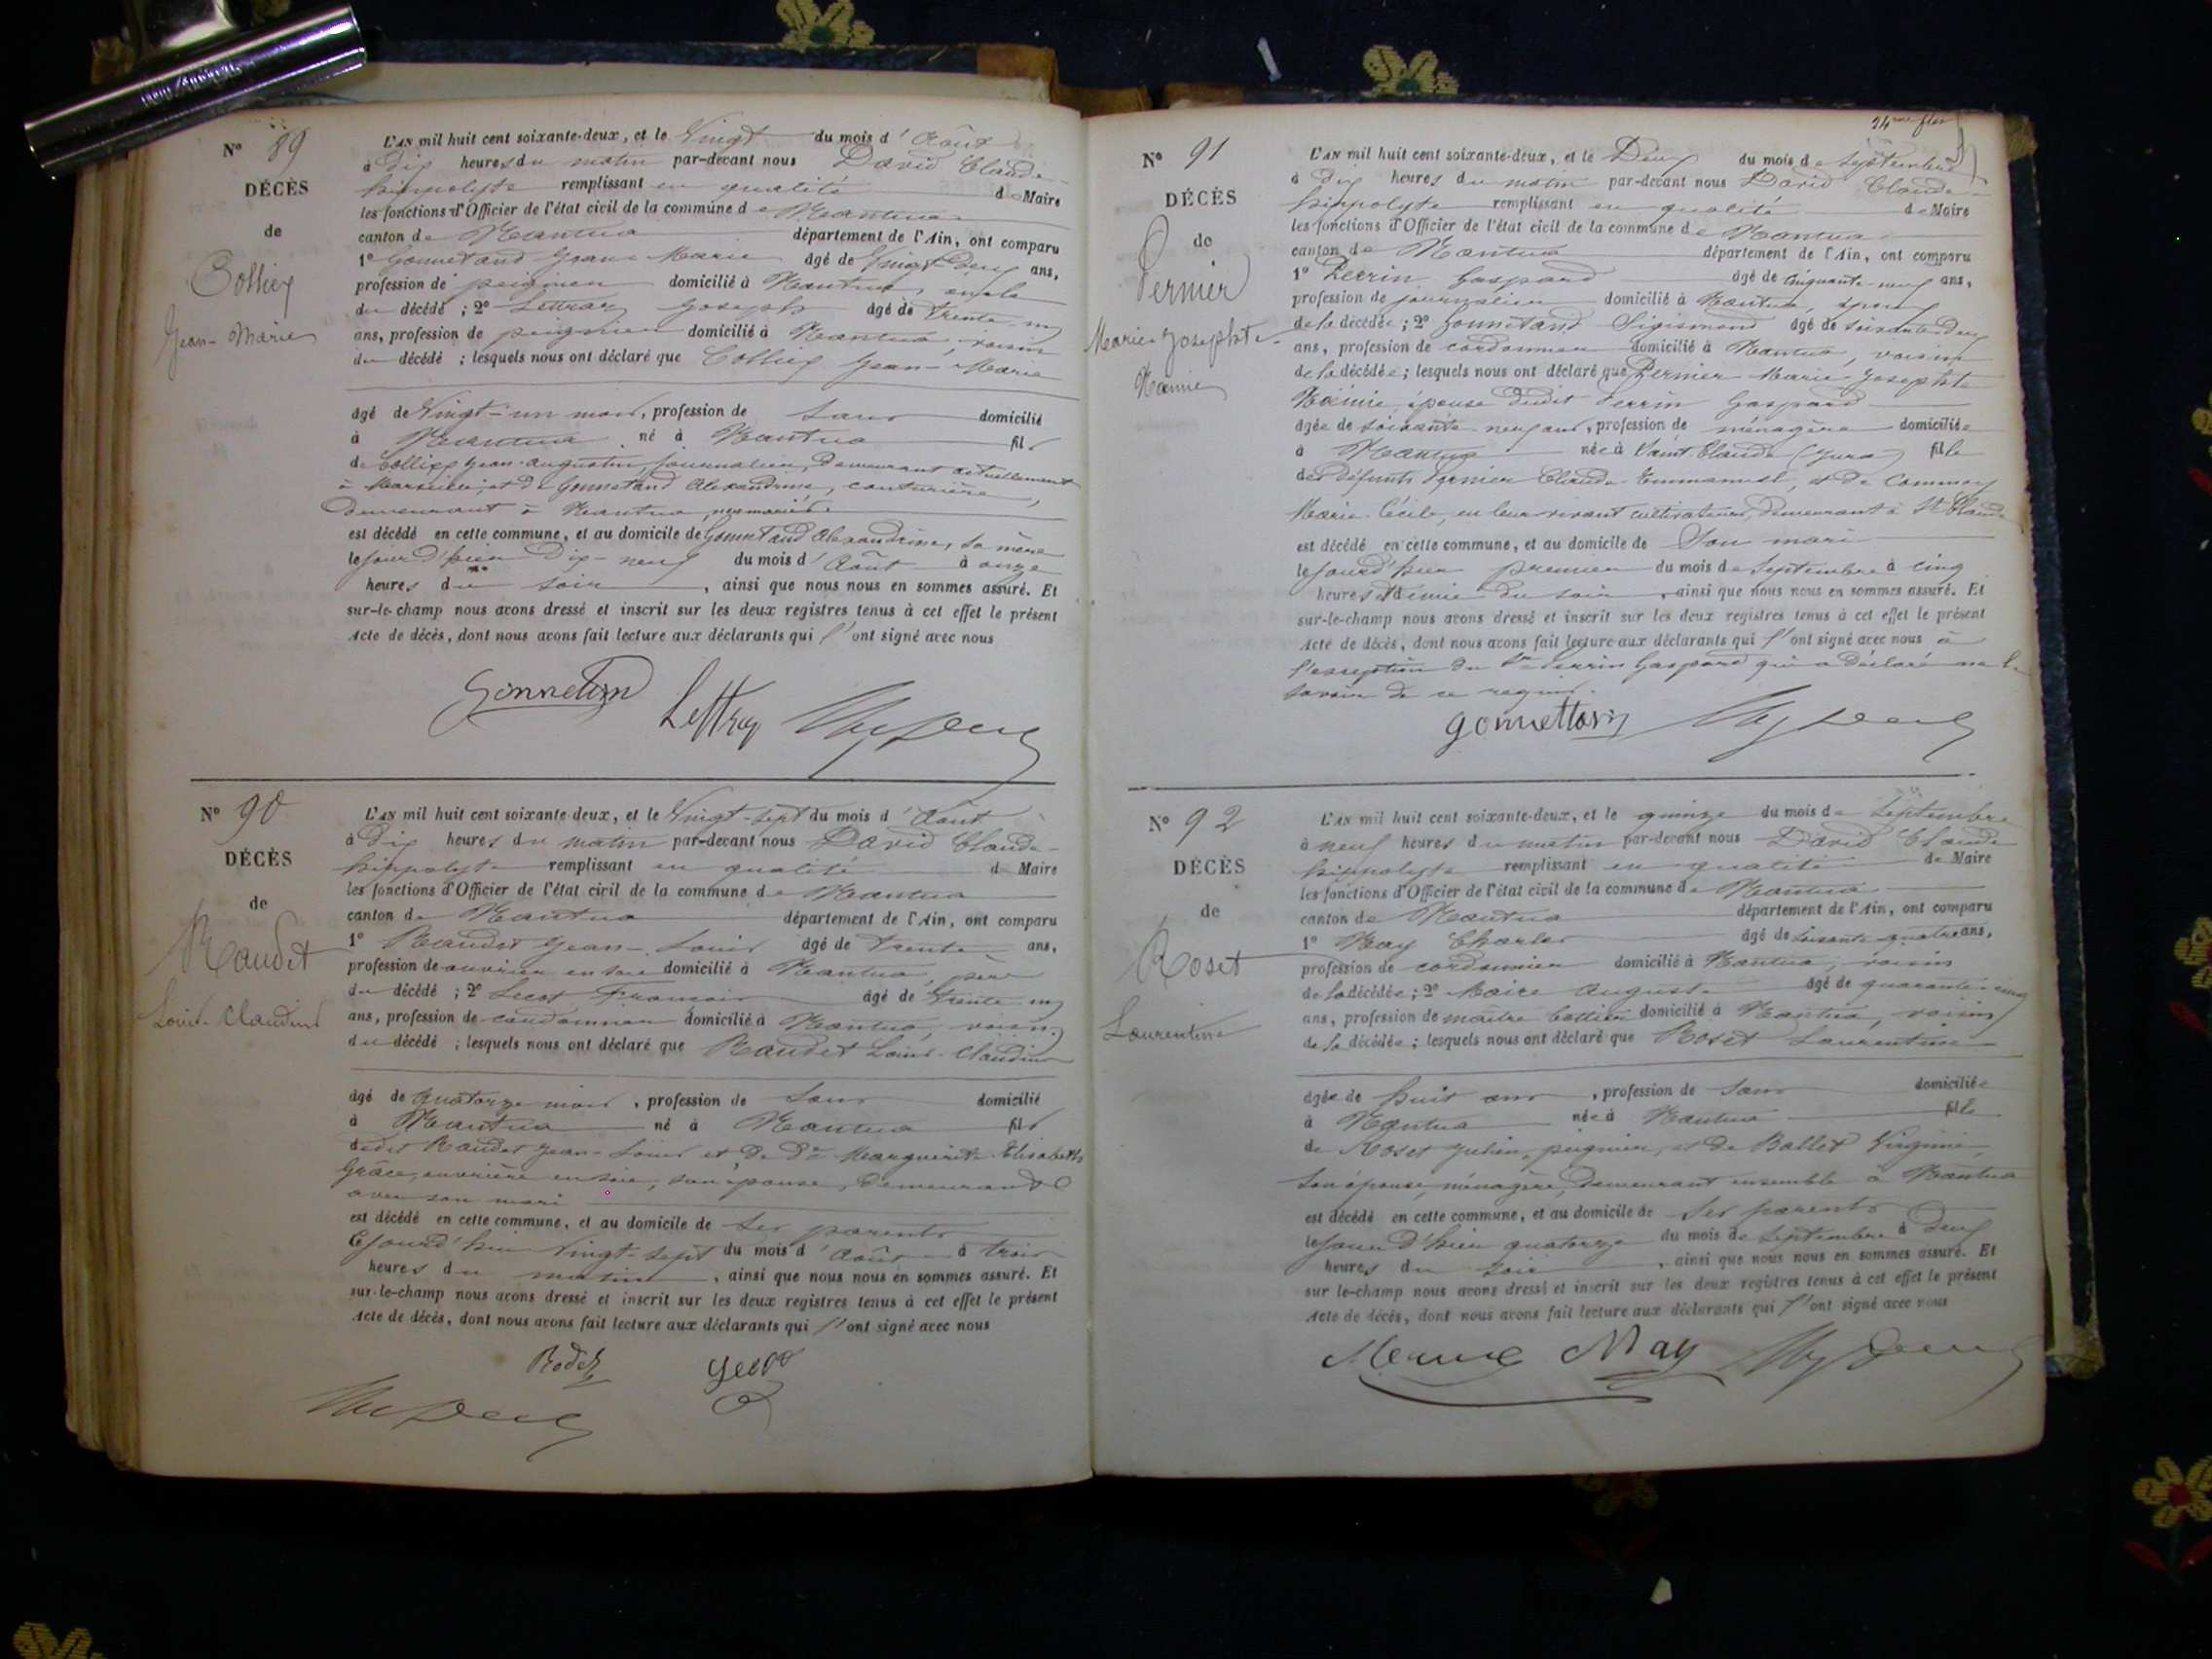 N° 89
DÉCÈS
de
Colliex
Jean-Marie
L'AN mil huit cent soixante-deux, et le Vingt du mois d'Août
à dix heures du matin par-devant nous David Claude-
hippolyte remplissant en qualité de Maire
les fonctions d'Officier de l'état civil de la commune de Nantua
canton de Nantua département de l'Ain, ont comparu
1° Gonnetand Marie âgé de Vingt-deux ans,
profession de peignier domicilié à Nantua, oncle
du décédé ; 2° Lettraz Joseph âgé de trente-un
ans, profession de peignier domicilié à Nantua, voisin
du décédé ; lesquels nous ont déclaré que Colliex Jean-Marie
âgé de Vingt-un mois, profession de sans domicilié
à Nantua né à Nantua fils
de Colliex Jean-Augustin, journalier, demeurant actuellement
à Marseille, et de Gonnetand Alexandrine, couturière,
demeurant à Nantua, non mariés
est décédé en cette commune, et au domicile de Gonnetand Alexandrine, sa mère
le jour d'hier dix-neuf du mois d'Août à onze
heures du soir, ainsi que nous nous en sommes assuré. Et
sur-le-champ nous avons dressé et inscrit sur les deux registres tenus à cet effet le présent
Acte de décès, dont nous avons fait lecture aux déclarants qui l'ont signé avec nous
Gonnetand Lettraz
N° 90
DÉCÈS
de
Raudet
Louis-Claudius
L'AN mil huit cent soixante-deux, et le Vingt-sept du mois d'Août
à dix heures du matin par-devant nous David Claude-
hippolyte remplissant en qualité de Maire
les fonctions d'Officier de l'état civil de la commune de Nantua
canton de Nantua département de l'Ain, ont comparu
1° Raudet Jean-Louis âgé de trente ans,
profession de ouvrier en soie domicilié à Nantua, père
du décédé ; 2° François âgé de trente-un
ans, profession de cordonnier domicilié à Nantua, voisin
du décédé ; lesquels nous ont déclaré que Raudet Louis-Claudius
âgé de quatorze mois, profession de sans domicilié
à Nantua né à Nantua fils
dudit Raudet Jean-Louis et de De Marguerite Elisabeth
Grâce, ouvrière en soie, son épouse, demeurant
avec son mari
est décédé en cette commune, et au domicile de ses parents
ce jourd'hui Vingt-sept du mois d'Août à trois
heures du matin, ainsi que nous nous en sommes assuré. Et
sur-le-champ nous avons dressé et inscrit sur les deux registres tenus à cet effet le présent
Acte de décès, dont nous avons fait lecture aux déclarants qui l'ont signé avec nous
24me
N° 91
DÉCÈS
de
Pernier
Marie-Josephte-
L'AN mil huit cent soixante-deux, et le Deux du mois de Septembre
à dix heures du matin par-devant nous David Claude-
hippolyte remplissant en qualité de Maire
les fonctions d'Officier de l'état civil de la commune de Nantua
canton de Nantua département de l'Ain, ont comparu
1° Perrin Gaspard âgé de cinquante-neuf ans,
profession de journalier domicilié à Nantua, époux
de la décédée ; 2° Gonnetand Sigismond âgé de soixante-deux
ans, profession de cordonnier domicilié à Nantua, voisin
de la décédée ; lesquels nous ont déclaré que Pernier Marie-Josephte
épouse dudit Perrin Gaspard
âgée de soixante neuf ans, profession de ménagère domiciliée
à Nantua née à Saint-Claude (Jura) fille
des défunts Pernier Claude Emmanuel, et de Commoy
Marie-Cécile, en leur vivant cultivateurs, demeurant à St Claude
est décédé en cette commune, et au domicile de Son mari
le jour d'hier premier du mois de Septembre à cinq
heures et demie du soir, ainsi que nous nous en sommes assuré. Et
sur-le-champ nous avons dressé et inscrit sur les deux registres tenus à cet effet le présent
Acte de décès, dont nous avons fait lecture aux déclarants qui l'ont signé avec nous à
l'exception du Sr Perrin Gaspard qui a déclaré ne le
savoir de ce requis.
gonnettand
N° 92
DÉCÈS
de
Roset
Laurentine
L'AN mil huit cent soixante-deux, et le quinze du mois de Septembre
à neuf heures du matin par-devant nous David Claude
hippolyte remplissant en qualité de Maire
les fonctions d'Officier de l'état civil de la commune de Nantua
canton de Nantua département de l'Ain, ont comparu
1° May Charles âgé de soixante-quatre ans,
profession de cordonnier domicilié à Nantua, voisin
de la décédée ; 2° Auguste âgé de quarante-cinq
ans, profession de maître bottier domicilié à Nantua, voisin
de la décédée ; lesquels nous ont déclaré que Roset Laurentine
âgée de huit ans, profession de sans domiciliée
à Nantua née à Nantua fille
de Roset Julien, peignier, et de Ballet Virginie,
son épouse, ménagère, demeurant ensemble à Nantua
est décédé en cette commune, et au domicile de Ses parents
le jour d'hier quatorze du mois de Septembre à deux
heures du soir, ainsi que nous nous en sommes assuré. Et
sur-le-champ nous avons dressé et inscrit sur les deux registres tenus à cet effet le présent
Acte de décès, dont nous avons fait lecture aux déclarants qui l'ont signé avec nous
May